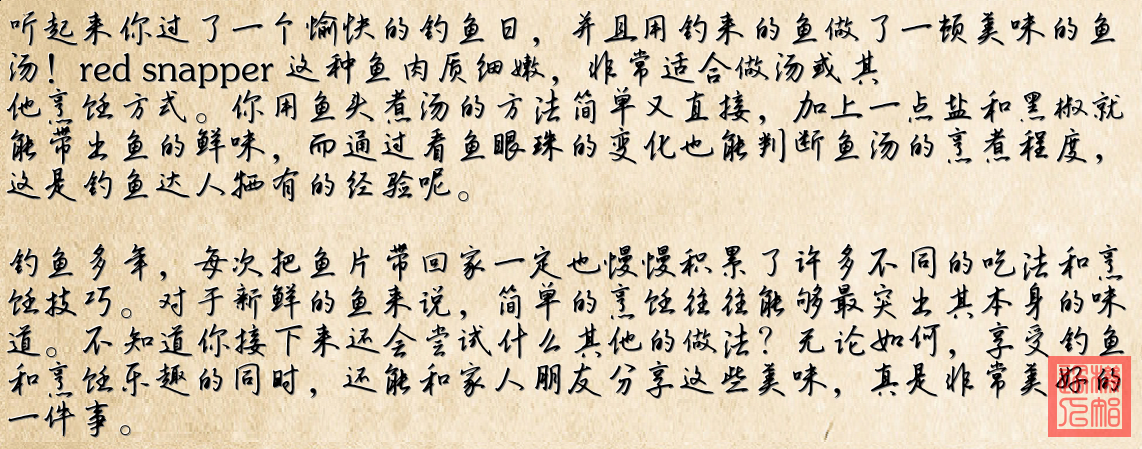 听起来你过了一个愉快的钓鱼日，并且用钓来的鱼做了一顿美味的鱼
汤！red snapper 这种鱼肉质细嫩，非常适合做汤或其
他烹饪方式。你用鱼头煮汤的方法简单又直接，加上一点盐和黑椒就
能带出鱼的鲜味，而通过看鱼眼珠的变化也能判断鱼汤的烹煮程度，
这是钓鱼达人牺有的经验呢。
钓鱼多年，每次把鱼片带回家一定也慢慢积累了许多不同的吃法和烹
饪技巧。对于新鲜的鱼来说，简单的烹饪往往能够最突出其本身的味
道。不知道你接下来还会尝试什么其他的做法？无论如何，享受钓鱼
和烹饪乐趣的同时，还能和家人朋友分享这些美味，真是非常美好的
一件事。